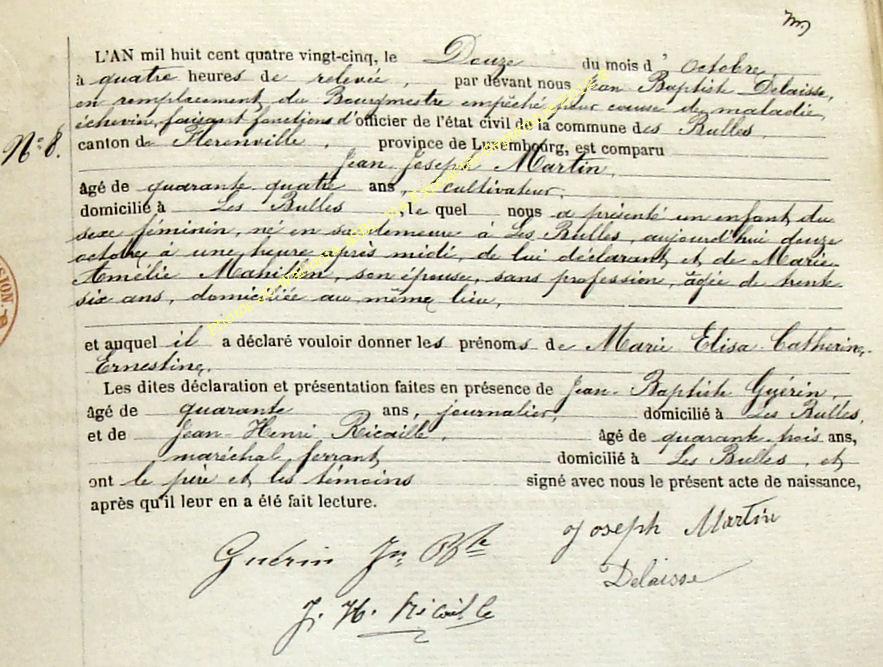 L'AN mil huit cent quatre vingt-cinq, le Douze du mois d'octobre,
à quatre heures de relevée, par devant nous Jean Baptiste Delaisse,
en remplacement du Bourgmestre empêché pour cause de maladie,
échevin, faisant fonctions d'officier de l'état civil de la commune des Bulles,
N° 8.
canton de Florenville, province de Luxembourg, est comparu
Jean Joseph Martin,
âgé de quarante quatre ans, cultivateur,
domicilié à Les Bulles, le quel nous a présenté un enfant du
sexe féminin, né en sa demeure à Les Bulles, aujourd'hui douze
octobre à une heure après midi, de lui déclarant et de Marie
Amélie Mahillon, son épouse, sans profession, âgée de trente
six ans, domiciliée au même lieu,
et auquel il a déclaré vouloir donner les prénoms de Marie Elisa Catherine
Ernestine.
Les dites déclaration et présentation faites en présence de Jean-Baptiste Guérin,
âgé de quarante ans, journalier, domicilié à Les Bulles,
et de Jean-Henri Ricaille, âgé de quarante trois ans,
maréchal ferrant domicilié à Les Bulles, et
ont le père et les témoins signé avec nous le présent acte de naissance,
après qu'il leur en a été fait lecture.
Joseph Martin
Guérin Jn Bte
Delaisse
J. H. Ricaille